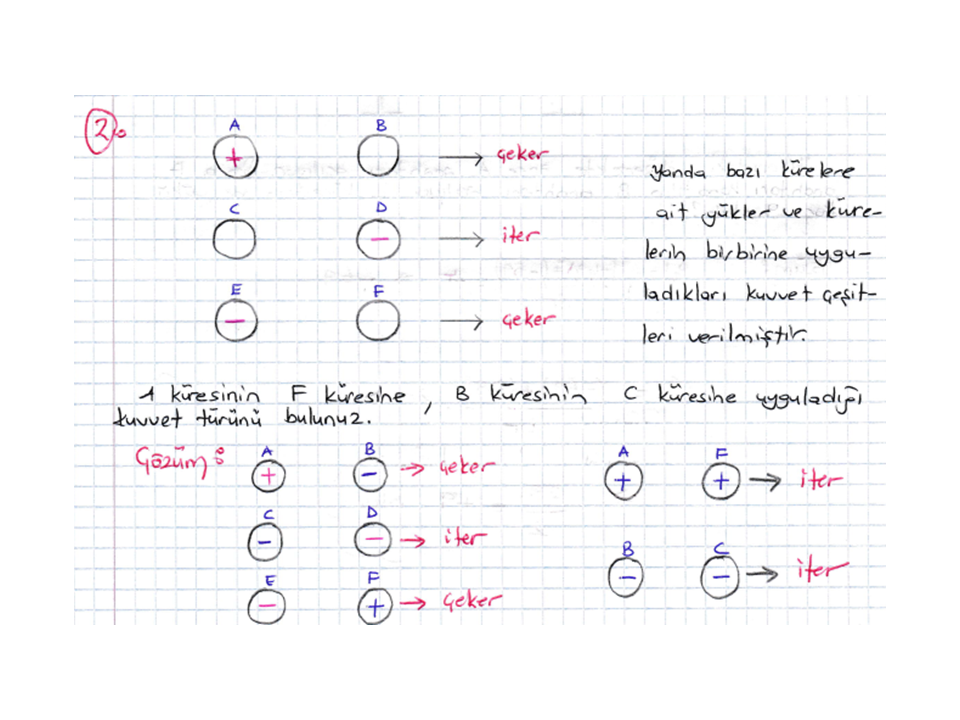 2.
A B
+ → çeker
C D
- → iter
E F
- → çeker
Yanda bazı kürelere
ait yükler ve küre-
lerin birbirine uygu-
ladıkları kuvvet çeşit-
leri verilmiştir.
A küresinin F küresine, B küresinin C küresine uyguladığı
kuvvet türünü bulunuz.
Çözüm:
A B
+ - → çeker
C D
- - → iter
E F
- + → çeker
A F
+ + → iter
B C
- - → iter